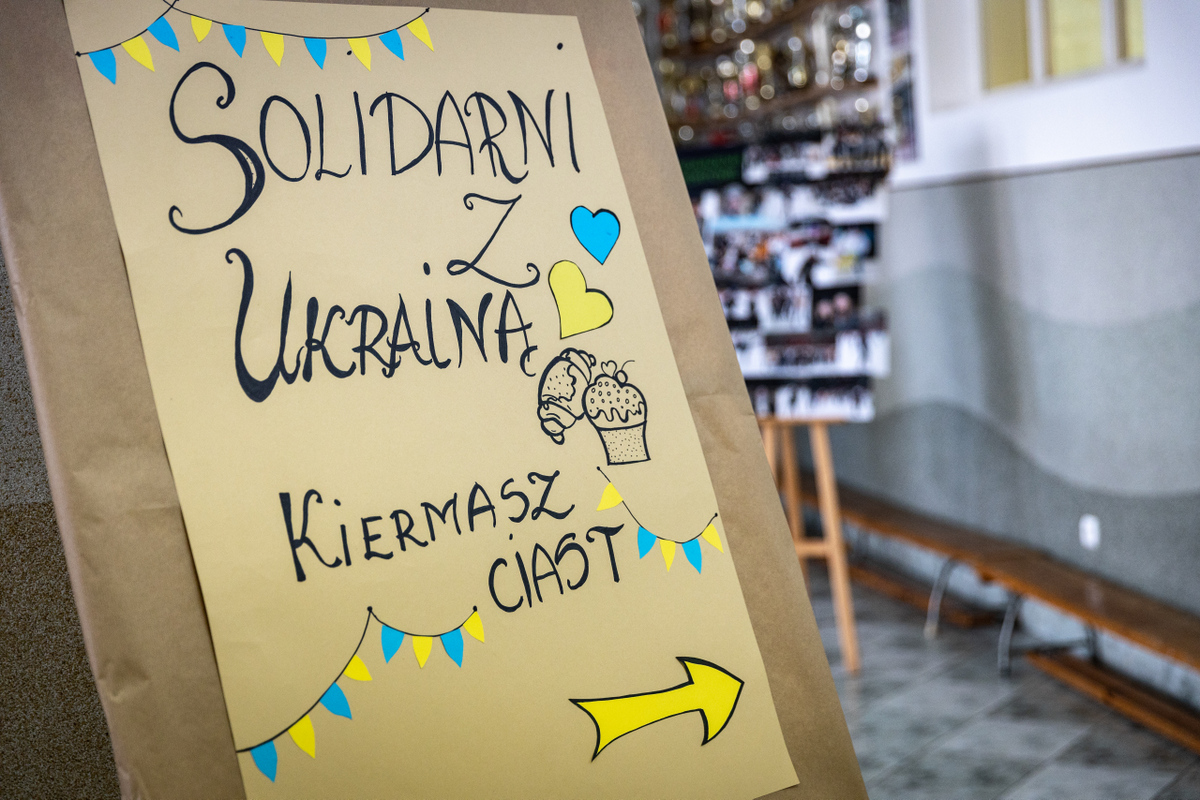 SOLIDARNI
Z
UKRAINĄ
KIERMASZ
CIAST